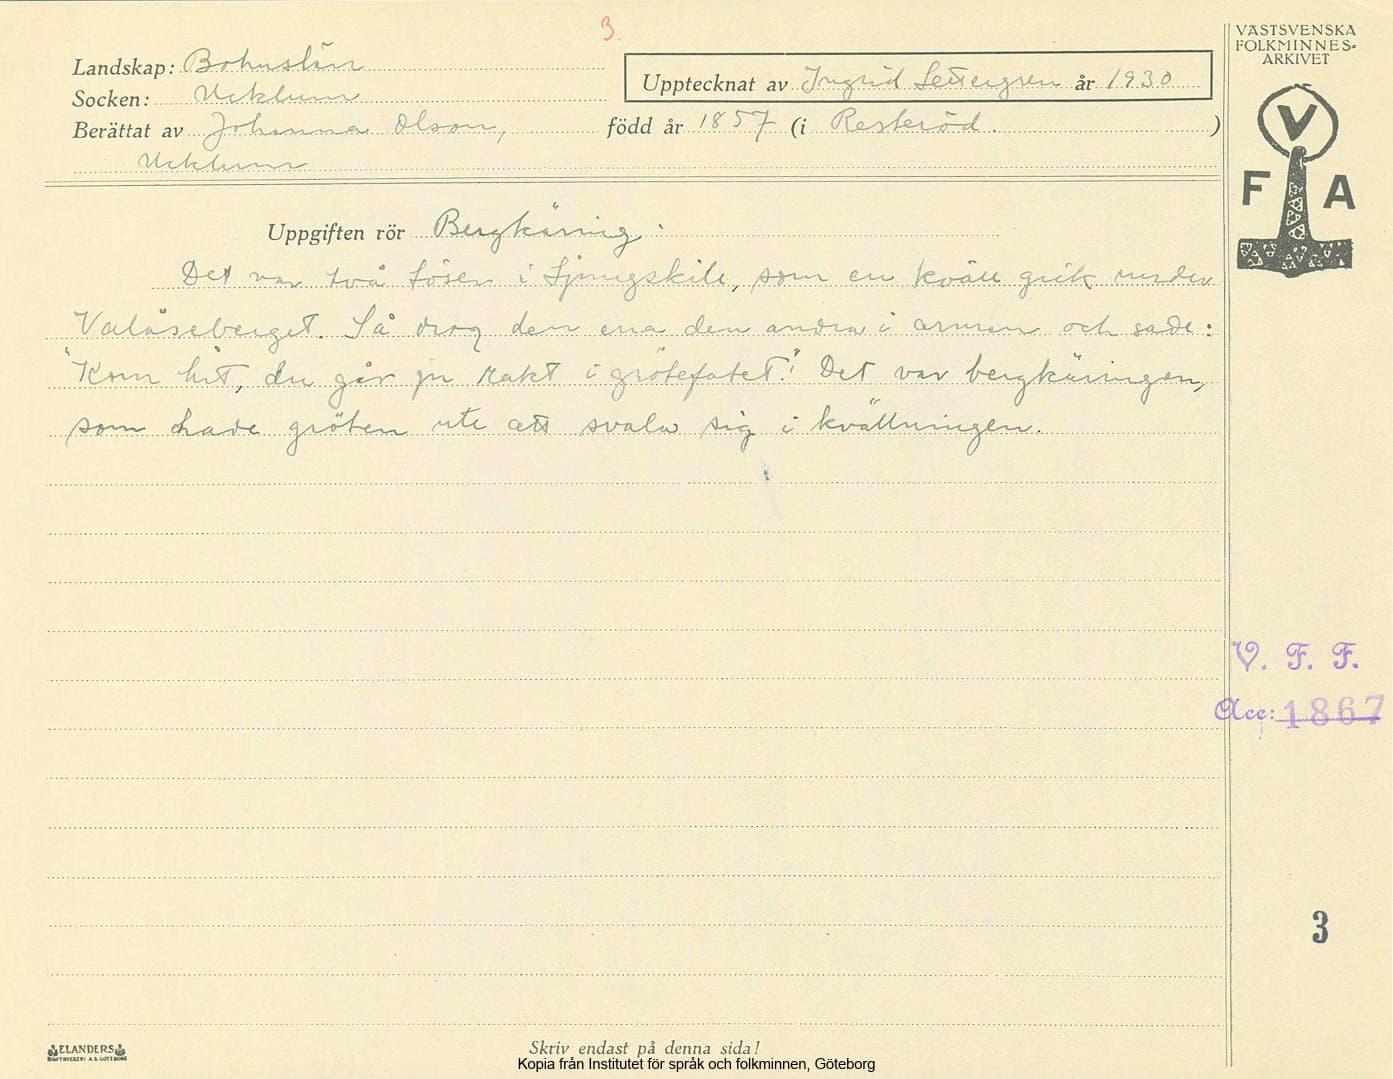 3.
VÄSTSVENSKA
FOLKMINNES-
ARKIVET
Landskap: Bohuslän
Upptecknat av Ingrid Settergren år 1930
Socken: Ucklum
Berättat av Johanna Olson, född år 1857 (i Resteröd. )
Ucklum
V
F A
Uppgiften rör Bergkäring.
Det var två töser i Ljungskile, som en kväll gick under
Valåseberget. Så drog den ena den andra i armen och sade:
"Kom hit, du går ju rakt i grötefatet!" Det var bergkäringen,
som hade gröten ute att svala sig i kvällningen.
V. F. F.
Acc: 1867
3
ELANDERS
BOKTRYCKERI A.B. GÖTEBORG
Skriv endast på denna sida!
Kopia från Institutet för språk och folkminnen, Göteborg